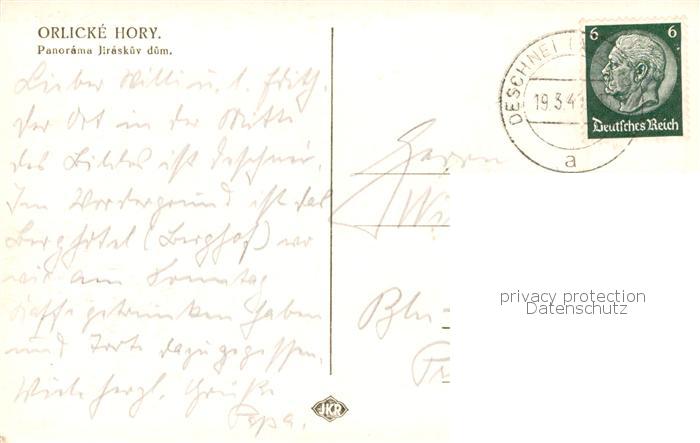 ORLICKÉ HORY.
Panoráma Jiráskův dům.
Lieber Willi u. l. Edith.
Der Ort in der Mitte
des Bildes ist Deschnei.
Im Vordergrund ist das
Berghotel (Berghof) wo
wir am Sonntag
Kaffe getrunken haben
und Torte dazu gegessen.
Viele herzl. Grüße
Papa.
JKR
DESCHNEI
19.3.41
a
6 6
Deutsches Reich
Herrn
Wi
privacy protection
Datenschutz